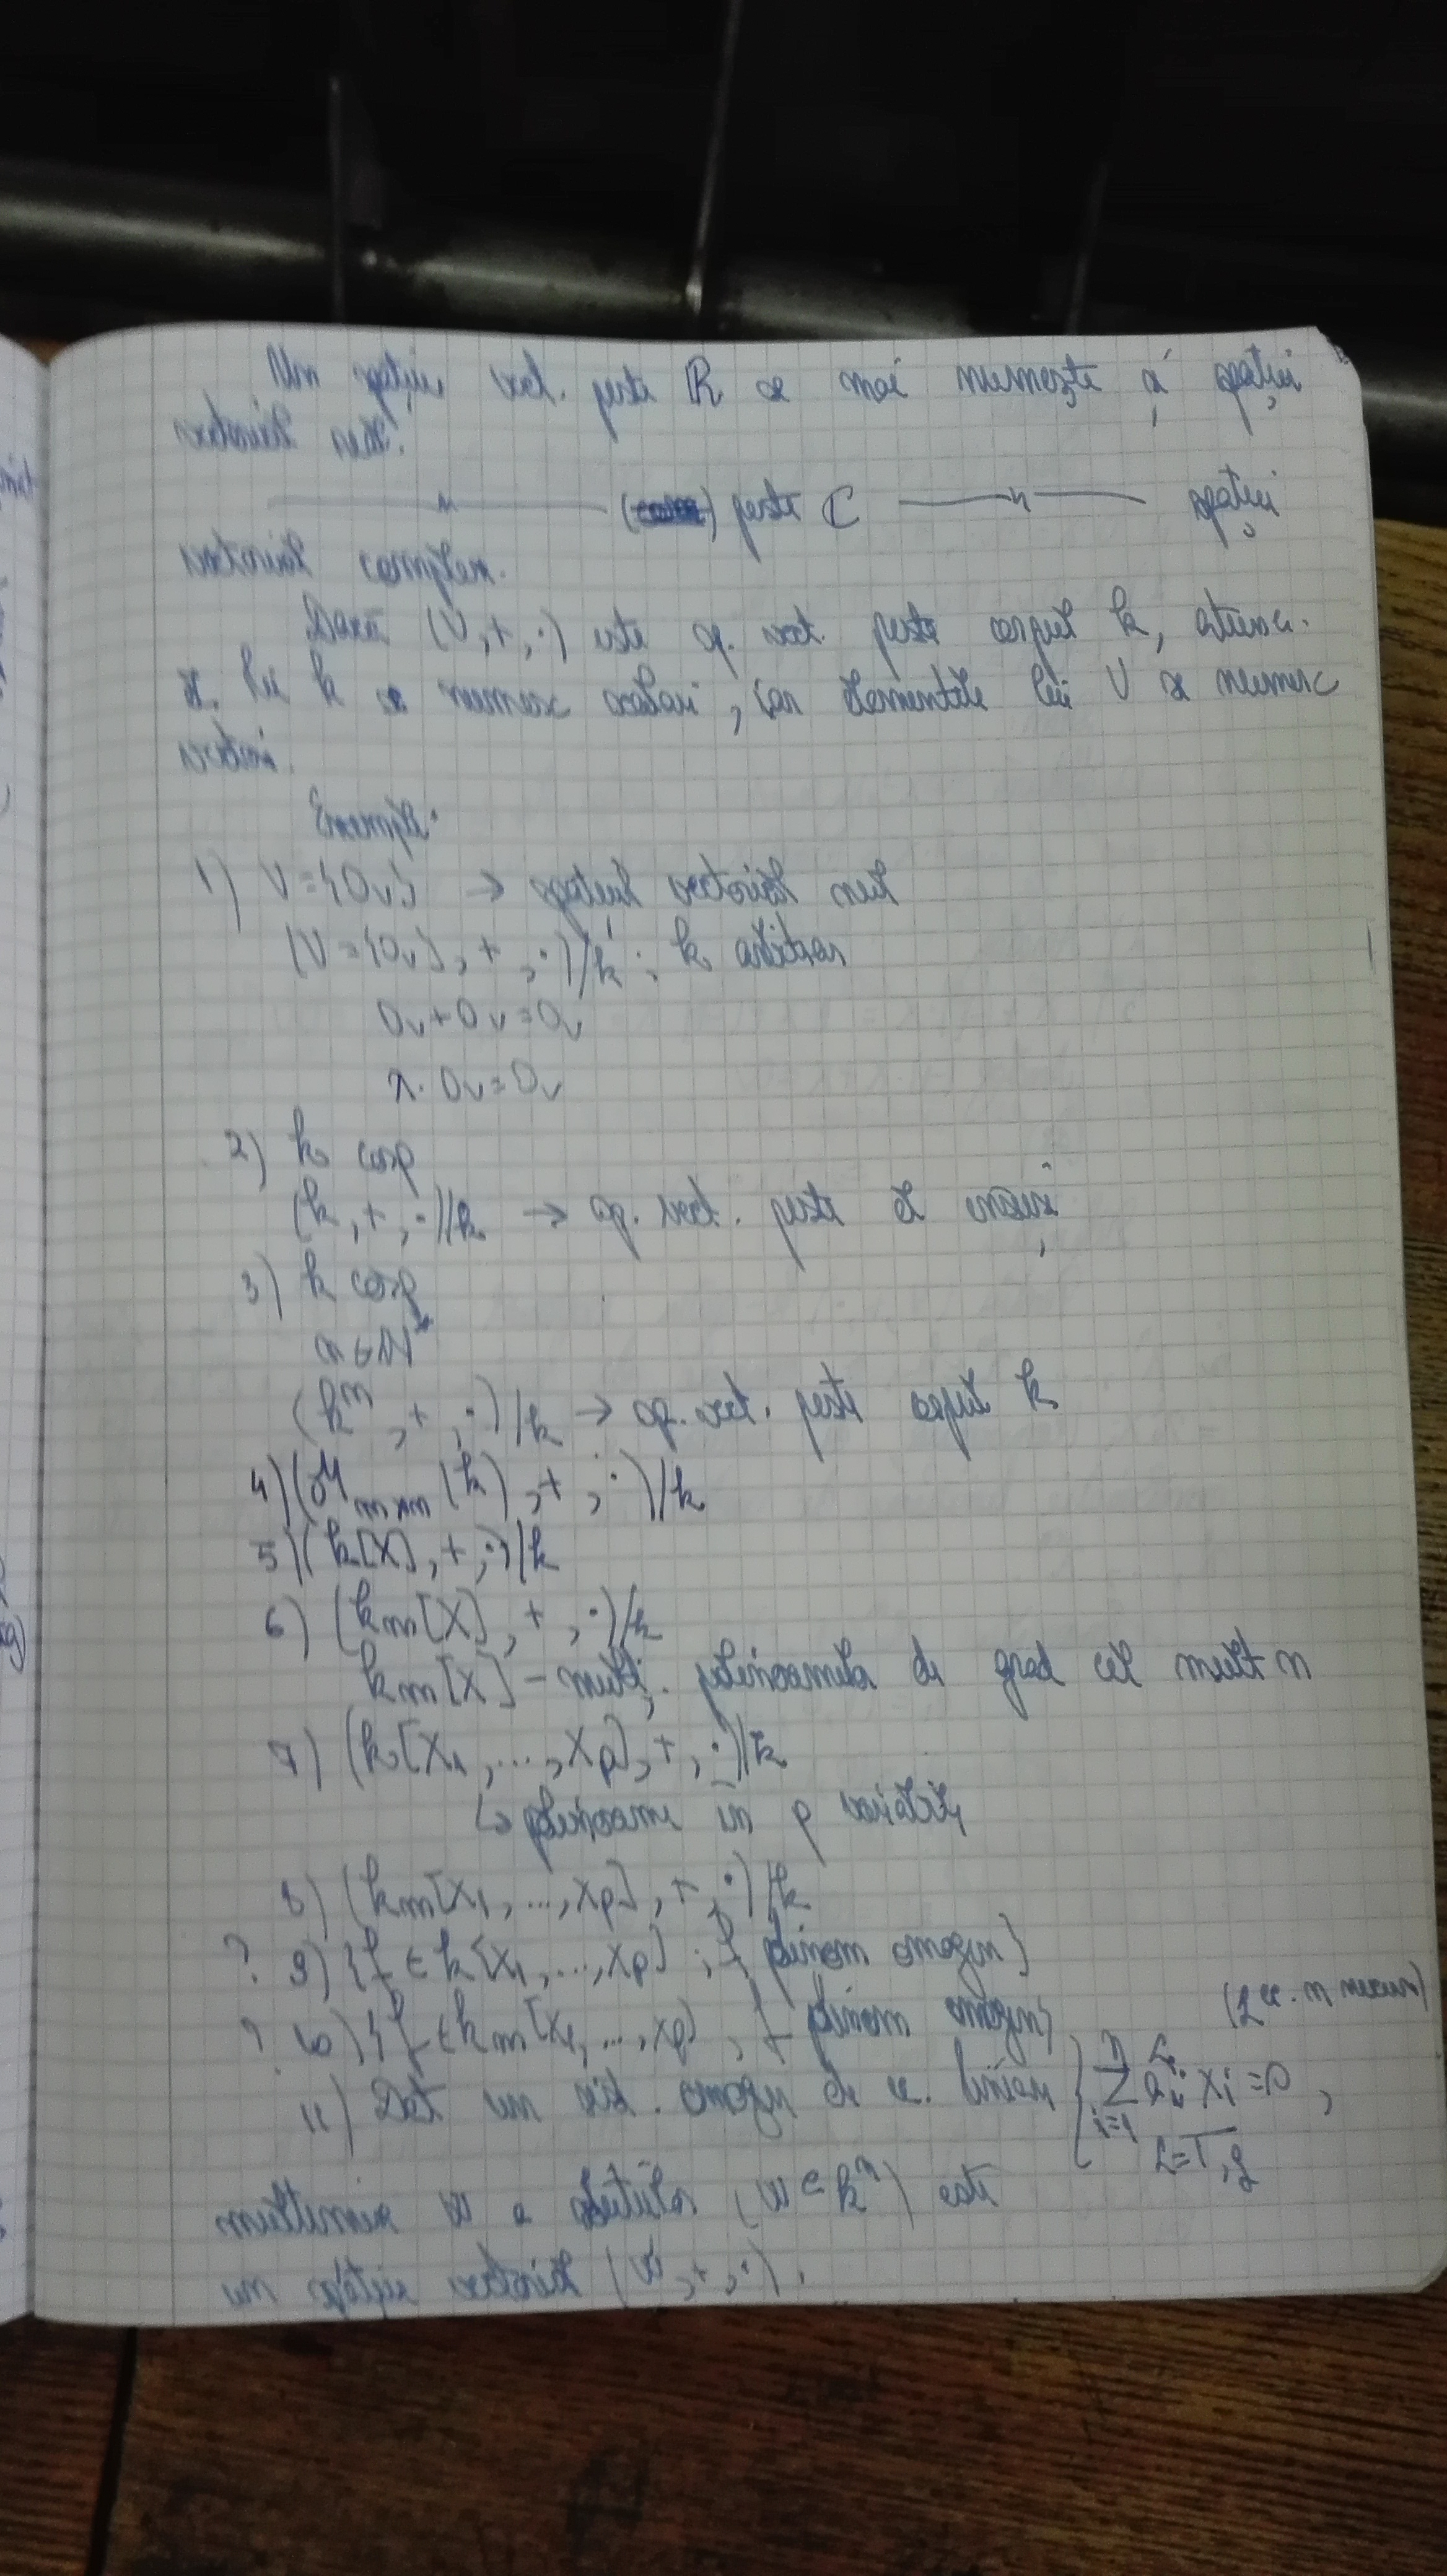 Un spațiu vect. peste R se mai numește și spațiu
vectorial real.
—— " —— peste C —— " —— spațiu
vectorial complex.
Dacă (V, +, ·) este sp. vect. peste corpul k, atunci
el. lui k se numesc scalari, iar elementele lui V se numesc
vectori.
Exemple:
1) V = {0v} → spațiul vectorial nul
(V = {0v}, +, ·)/k ; k arbitrar
0v + 0v = 0v
λ · 0v = 0v
2) k corp
(k, +, ·)/k → sp. vect. peste el însuși
3) k corp
n ∈ N*
(kⁿ, +, ·)/k → sp. vect. peste corpul k
4) (M m×n (k), +, ·)/k
5) (k[X], +, ·)/k
6) (kn[X], +, ·)/k
kn[X] – mulț. polinoamelor de grad cel mult n
7) (k[X1, ..., Xp], +, ·)/k
↳ polinoame în p variabile
8) (kn[X1, ..., Xp], +, ·)/k
? 9) {f ∈ k[X1, ..., Xp] ; f polinom omogen}
? 10) {f ∈ kn[X1, ..., Xp] , f polinom omogen}
(2 ec. n necun)
11) Dat un sist. omogen de ec. liniare { Σ xi = 0 ,
i=1
mulțimea W a soluțiilor (W ⊆ kⁿ) este
un spațiu vectorial (W, +, ·).